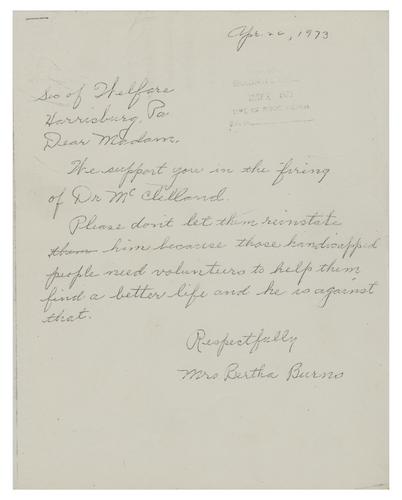 Apr. 26, 1973
Sec of Welfare
Harrisburg, Pa
Dear Madam,
We support you in the firing
of Dr McClelland.
Please don't let them reinstate
them him because those handicapped
people need volunteers to help them
find a better life and he is against
that.
Respectfully
Mrs Bertha Burns